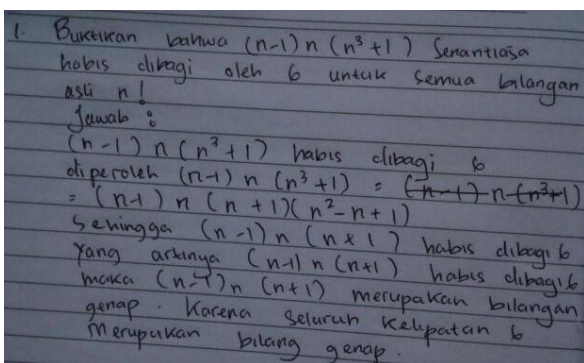 1. Buktikan bahwa (n-1) n (n³ +1) Senantiasa
habis dibagi oleh 6 untuk semua bilangan
asli n!
Jawab :
(n-1) n (n³ +1) habis dibagi 6
diperoleh (n-1) n (n³ +1) = (n-1) n (n³+1)
= (n-1) n (n +1)(n² - n + 1)
Sehingga (n-1) n (n+1) habis dibagi 6
Yang artinya (n-1) n (n+1) habis dibagi 6
maka (n-1) n (n+1) merupakan bilangan
genap. Karena seluruh kelipatan 6
merupakan bilang genap.